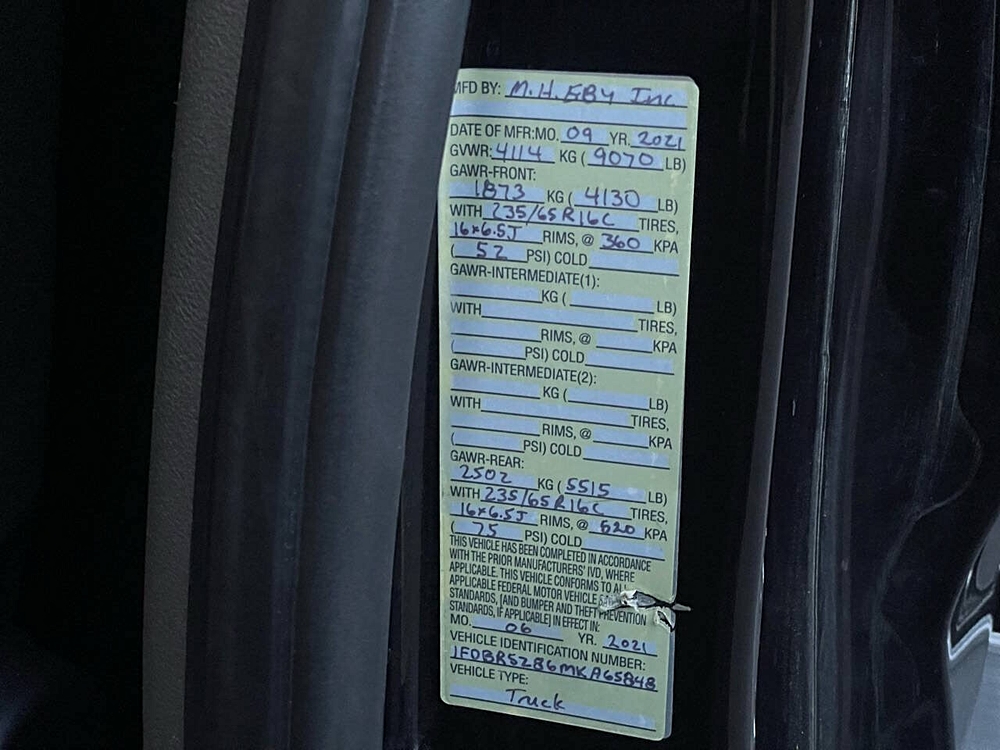 MFD BY: M.H. EBY Inc
DATE OF MFR:MO. 09 YR. 2021
GVWR: 4114 KG ( 9070 LB)
GAWR-FRONT:
1873 KG ( 4130 LB)
WITH 235/65R16C TIRES,
16x6.5J RIMS, @ 360 KPA
( 52 PSI) COLD
GAWR-INTERMEDIATE(1):
KG ( LB)
WITH TIRES,
RIMS, @ KPA
( PSI) COLD
GAWR-INTERMEDIATE(2):
KG ( LB)
WITH TIRES,
RIMS, @ KPA
( PSI) COLD
GAWR-REAR:
2502 KG ( 5515 LB)
WITH 235/65R16C TIRES,
16x6.5J RIMS, @ 520 KPA
( 75 PSI) COLD
THIS VEHICLE HAS BEEN COMPLETED IN ACCORDANCE
WITH THE PRIOR MANUFACTURERS' IVD, WHERE
APPLICABLE. THIS VEHICLE CONFORMS TO ALL
APPLICABLE FEDERAL MOTOR VEHICLE
STANDARDS, [AND BUMPER AND THEFT PREVENTION
STANDARDS, IF APPLICABLE] IN EFFECT IN:
MO. 06 YR. 2021
VEHICLE IDENTIFICATION NUMBER:
1FDBR5Z86MKA65848
VEHICLE TYPE:
Truck